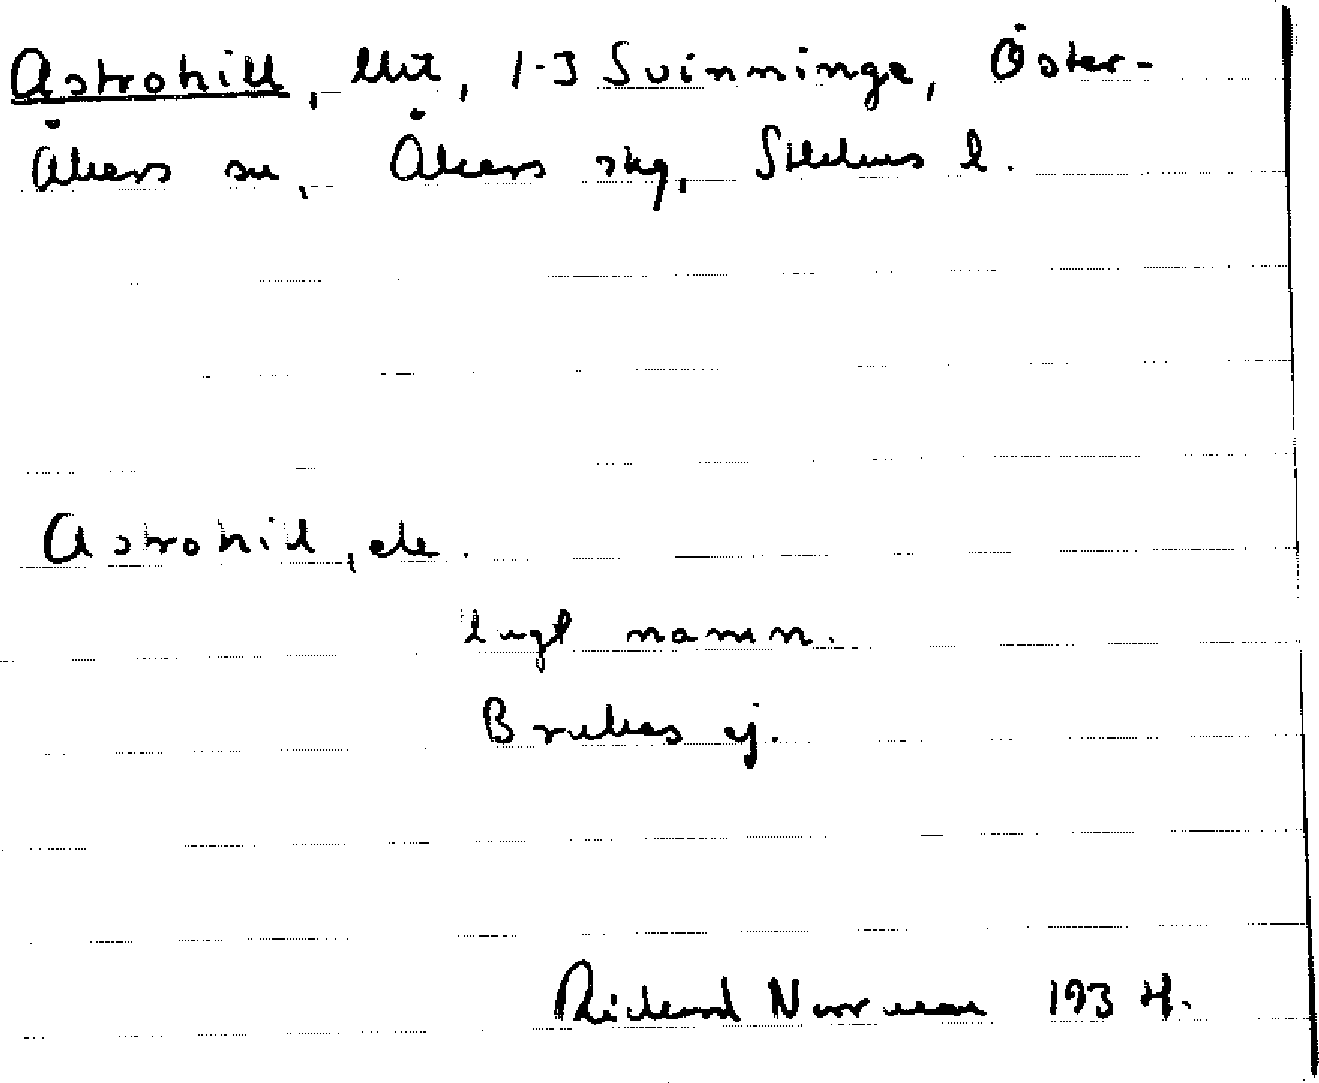 Astrohill, lht, 1-3 Svinninge, Öster-
Åkers sn, Åkers skg, Sthlms l.
Astrohill, ele.
Engl namn.
Brukas ej.
Rickard Norrman 1934.